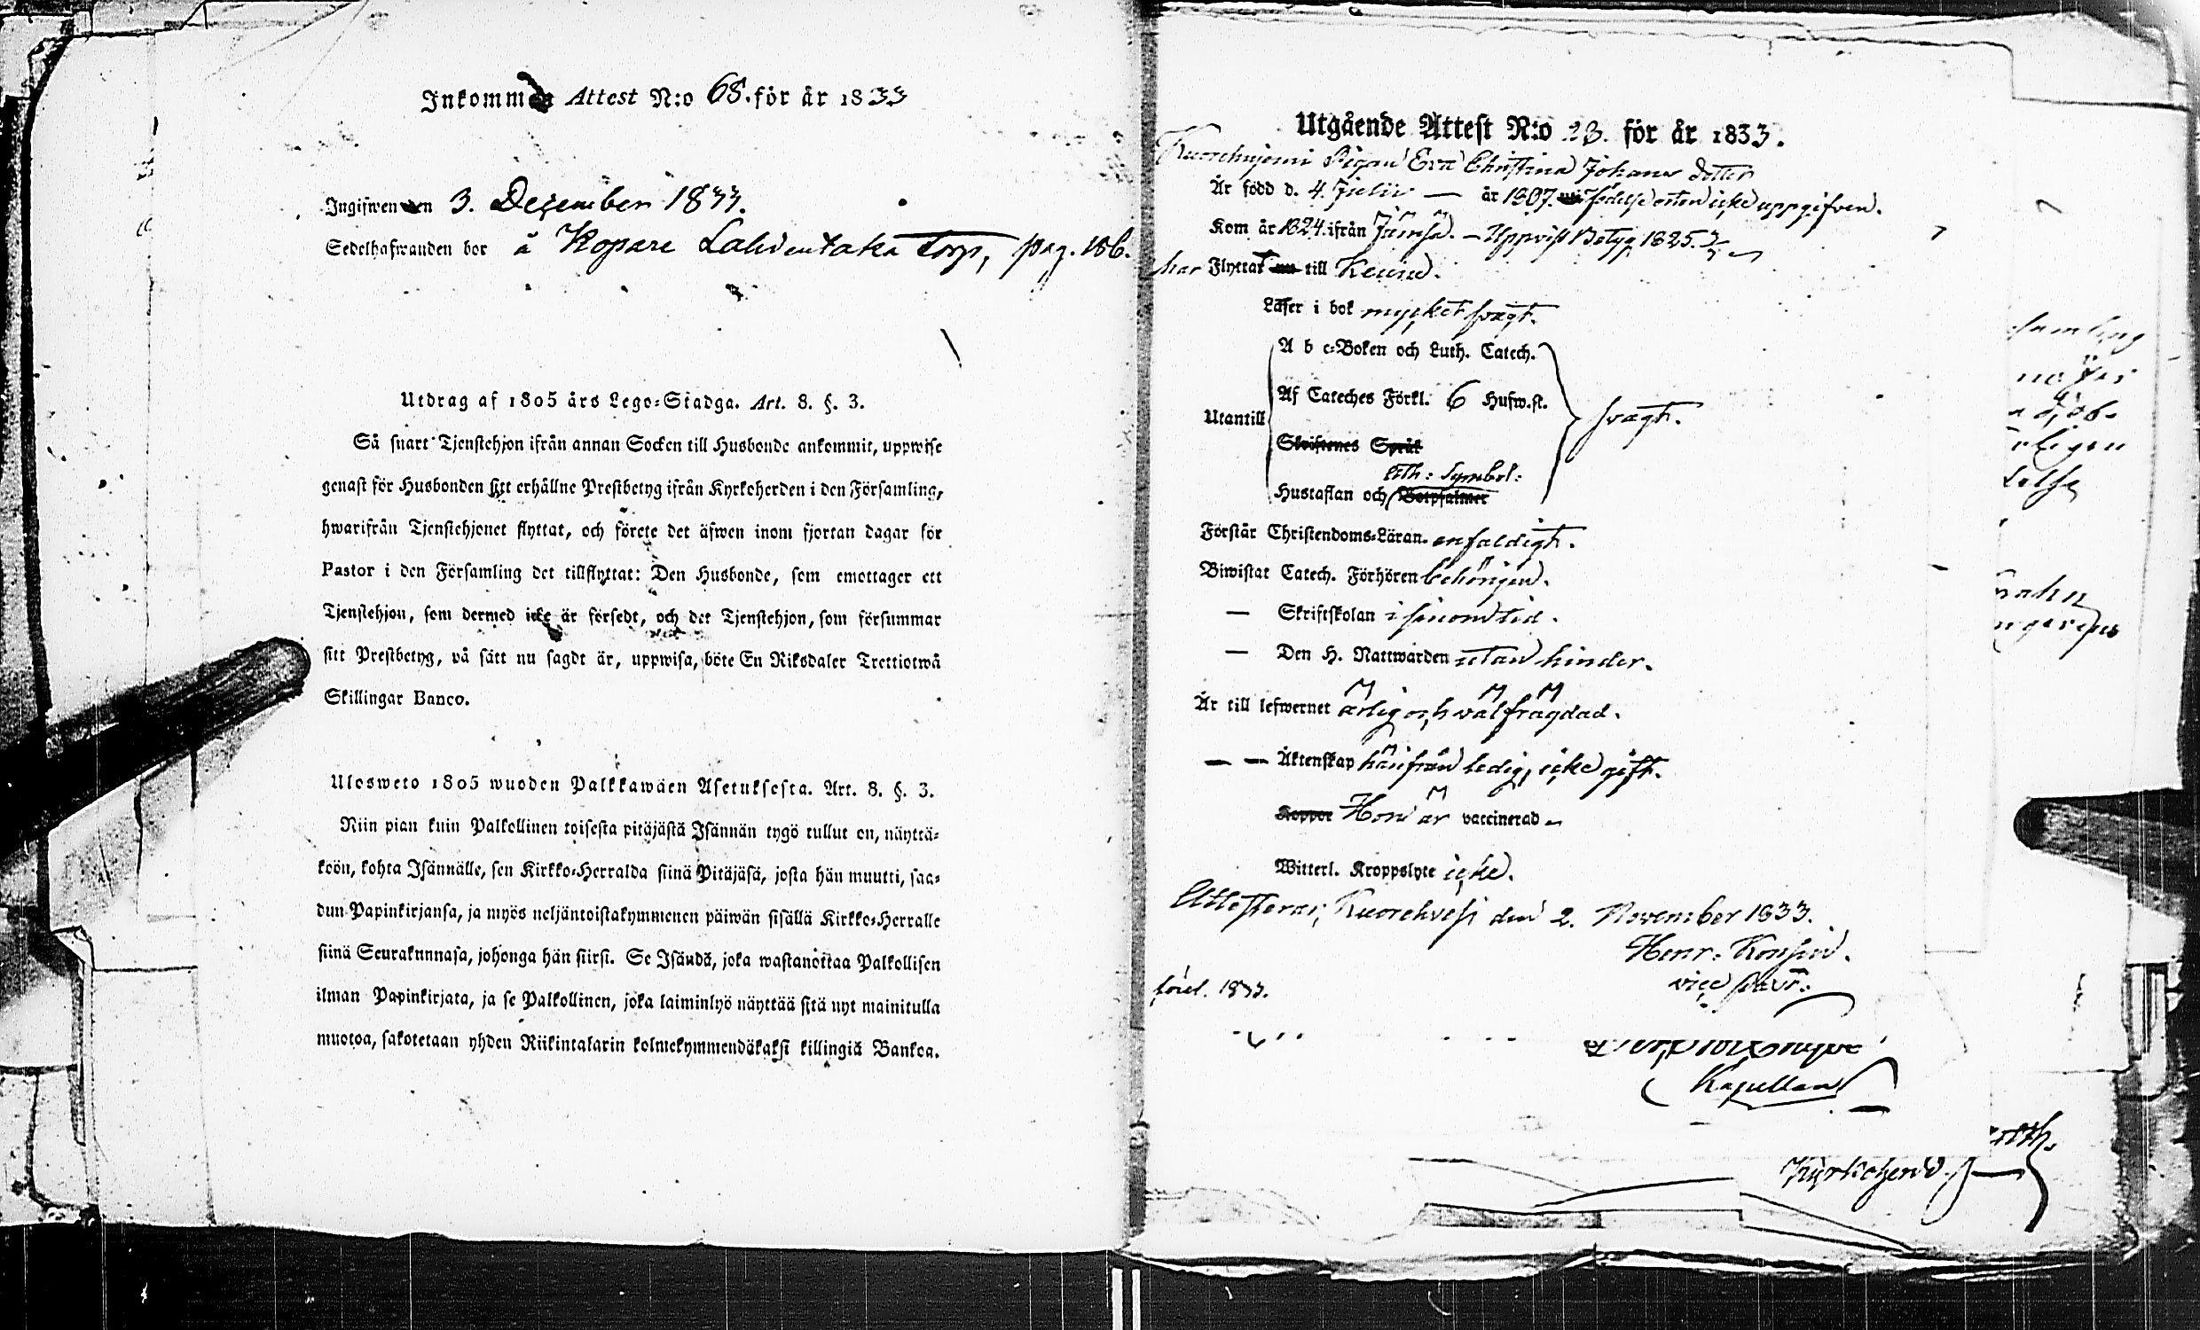 Inkommen Attest N:o 68. för år 1833
Ingifwen den 3. December 1833.
Sedelhafwanden bor å Kopare Lahdentaka Torp, pag. 186.
Utdrag af 1805 års Lego-Stadga. Art. 8. §. 3.
Så snart Tjenstehjon ifrån annan Socken till Husbonde ankommit, uppwise
genast för Husbonden sitt erhållne Prestbetyg ifrån Kyrkoherden i den Församling,
hwarifrån Tjenstehjonet flyttat, och förete det äfwen inom fjortan dagar för
Pastor i den Församling det tillflyttat: Den Husbonde, som emottager ett
Tjenstehjon, som dermed icke är försedt, och det Tjenstehjon, som försummar
sitt Prestbetyg, på sätt nu sagdt är, uppwisa, böte En Riksdaler Trettiotwå
Skillingar Banco.
Ulosweto 1805 wuoden Palkkawäen Asetuksesta. Art. 8. §. 3.
Niin pian kuin Palkollinen toisesta pitäjästä Isännän tygö tullut on, näyttä-
köön, kohta Isännälle, sen Kirkko-Herralda siinä Pitäjäsä, josta hän muutti, saa-
dun Papinkirjansa, ja myös neljäntoistakymmenen päiwän sisällä Kirkko-Herralle
siinä Seurakunnasa, johonga hän siirsi. Se Isändä, joka wastanottaa Palkollisen
ilman Papinkirjata, ja se Palkollinen, joka laiminlyö näyttää sitä nyt mainitulla
muotoa, sakotetaan yhden Riikintalarin kolmekymmendäkaksi killingiä Bankoa.
Utgående Attest N:o 23. för år 1833.
Pigan Eva Christina Johans dotter
Är född d. 4. Julii — år 1807. födelseorten icke uppgifven.
Kom år 1824 ifrån Jämsä. — Uppvist Betyg 1825.
har Flyttat till Keuru.
Läser i bok mycket svagt.
A b c-Boken och Luth. Catech.
Af Cateches Förkl. 6 Hufw.st.
Utantill
svagt.
Skriftenes Språk
Ath: Symbol:
Hustaflan och Botpsalmer
Förstår Christendoms-Läran enfaldigt.
Biwistat Catech. Förhören behörigen.
— Skriftskolan i sinom tid.
— Den H. Nattwarden utan hinder.
Är till lefwernet ärlig och välfrägdad.
— — Äktenskap härifrån ledig, icke gift.
Koppor Hon är vaccinerad —
Witterl. Kroppslyte icke.
Attesterar, Kuorehvesi den 2. November 1833.
Henr: Konsin.
vice
1833.
Kapellan
Kyrkoherd.